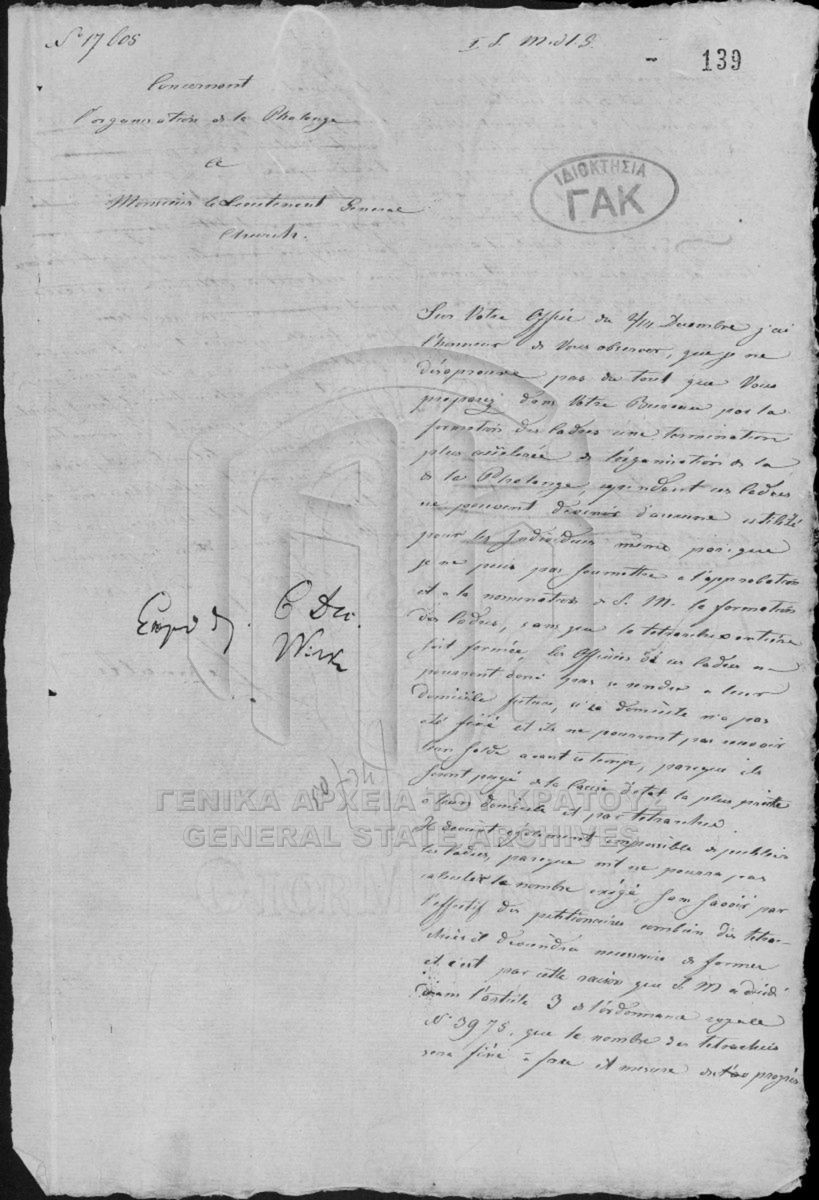 N° 17605
139
Concernant
l'organisation de la Phalange
a
Monsieur le Lieutenant General
Church.
ΙΔΙΟΚΤΗΣΙΑ
ΓΑΚ
Sur Votre Office du 2/14 Decembre j'ai
l'honneur de Vous observer, que je ne
désaprouve pas du tout que Vous
proposez dans Votre Bureau par la
formation des Cadres une termination
plus de l'organisation de la
de la Phalange, cependant ces Cadres
ne peuvent d'aucune utilité
pour les Individus même parceque
je ne puis pas soumettre a l'approbation
et a la nomination de S. M. la formation
des Cadres, sans que la tetrarchie entière
soit formée, les Officiers de ces Cadres ne
pourront donc pas se rendre a leur
domicile future, si ce domicile n'a pas
eté fixé et ils ne pourront pas recevoir
leur solde avant ce temps, parceque ils
seront payé de la Caisse d'etat la plus
a leurs domicile et par tetrarchie.
Il devient egalement impossible de publier
les Cadres, parceque ne pourra pas
calculer le nombre exigé sans savoir par
l'effectif des petitionaires combien des tetrar-
chies il deviendra necessaire de former
et c'est par cette raison que S. M a décidé
dans l'article 3 de l'ordonnance royale
N° 3975, que le nombre des tetrarchies
sera fixé à fure et mesure des progrès
6 Dec.
ΓΕΝΙΚΑ ΑΡΧΕΙΑ ΤΟΥ ΚΡΑΤΟΥΣ
GENERAL STATE ARCHIVES